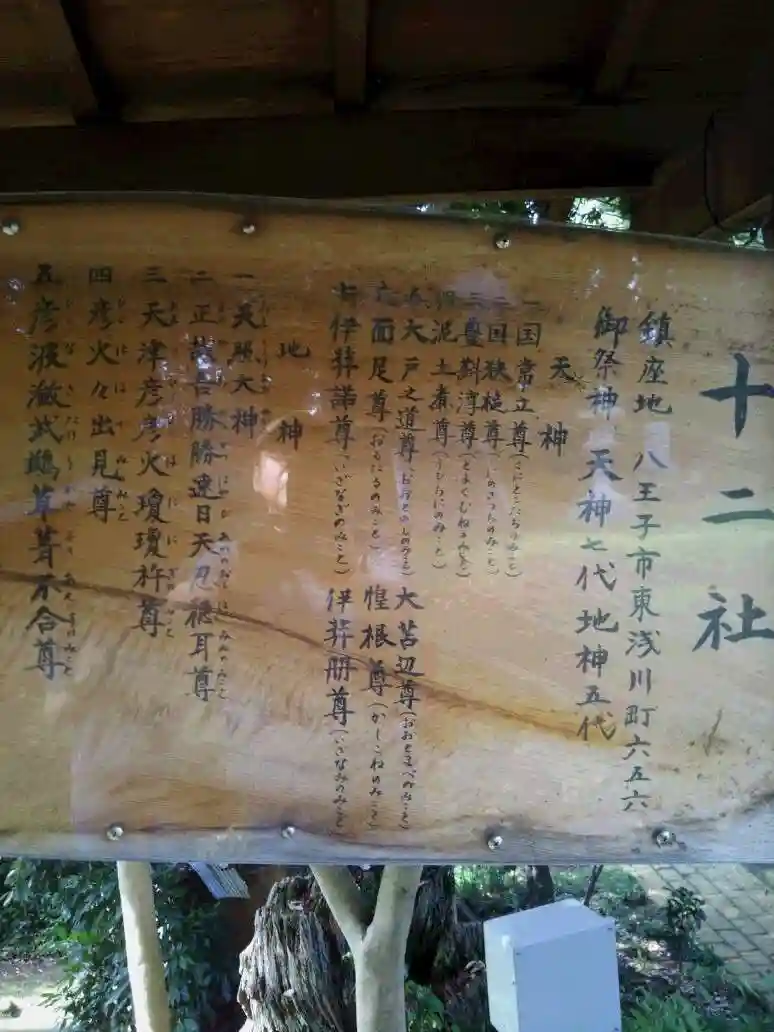 十二社
鎮座地 八王子市東浅川町六五六
御祭神 天神七代地神五代
天神
一国常立尊(くにとこたちのみこと)
二国狭槌尊(くにのさつちのみこと)
三豊斟渟尊(とよくむねのみこと)
四泥土煮尊(うひぢにのみこと)
五大戸之道尊(おおとのじのみこと) 大苫辺尊(おおとまべのみこと)
六面足尊(おもたるのみこと) 惶根尊(かしこねのみこと)
七伊弉諾尊(いざなぎのみこと) 伊弉冊尊(いざなみのみこと)
地神
一天照大神
二正哉吾勝勝速日天忍穂耳尊
三天津彦彦火瓊瓊杵尊
四彦火々出見尊
五彦波瀲武鸕草葺不合尊